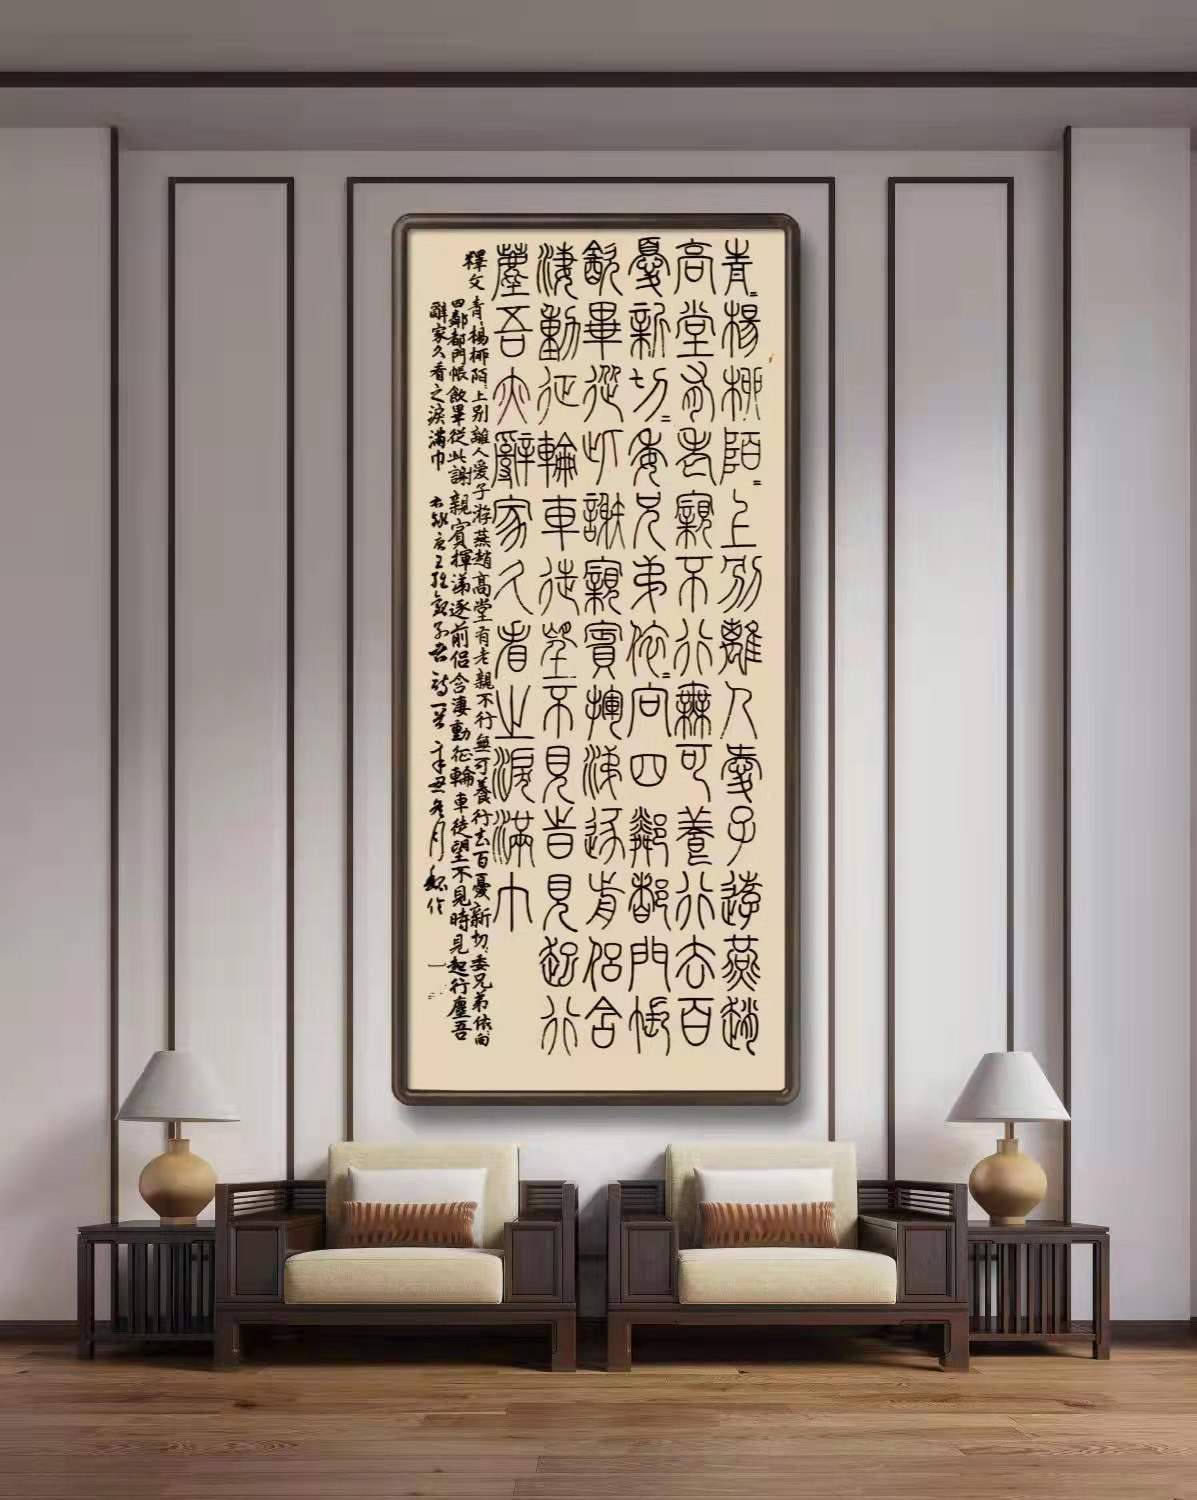 青〻楊柳陌〻上別離人愛子遊燕趙
高堂有老親不行無可養行去百
憂新切〻委兄弟依〻向四鄰都門帳
飲畢從此謝親賓揮涕逐前侶含
淒動征輪車徒望不見時見起行
塵吾亦辭家久看之淚滿巾
釋文 青〻楊柳陌〻上別離人愛子游燕趙高堂有老親不行無可養行去百憂新切〻委兄弟依〻向
四鄰都門帳飲畢從此謝親賓揮涕逐前侶含淒動征輪車徒望不見時見起行塵吾
辭家久看之淚滿巾 辛丑冬月